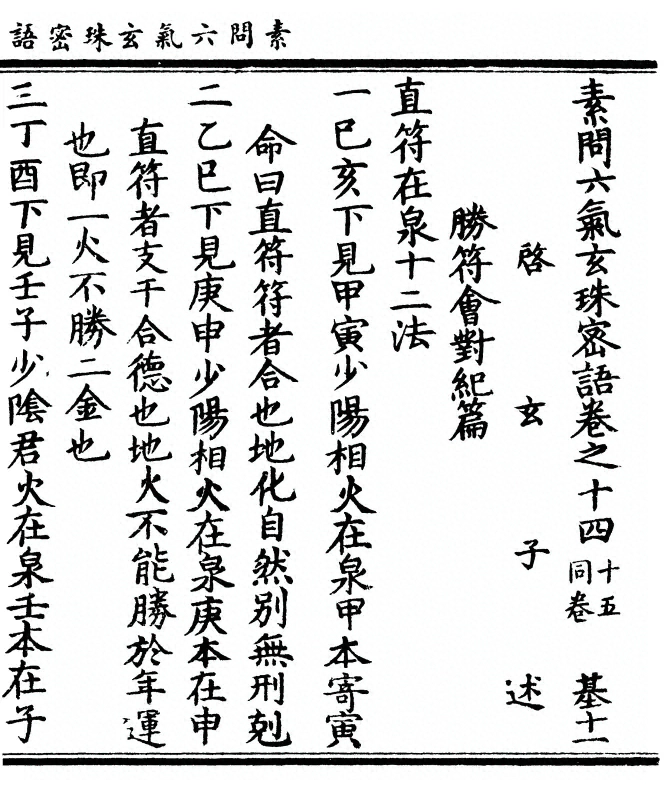 素問六氣玄珠密語
素問六氣玄珠密語卷之十四 十五同卷 基十一
啓玄子述
勝符會對紀篇
直符在泉十二法
一巳亥下見甲寅少陽相火在泉甲本寄寅
命曰直符符者合也地化自然別無刑剋
二乙巳下見庚申少陽相火在泉庚本在申
直符者支干合德也地火不能勝於年運
也即一火不勝二金也
三丁酉下見壬子少陰君火在泉壬本在子